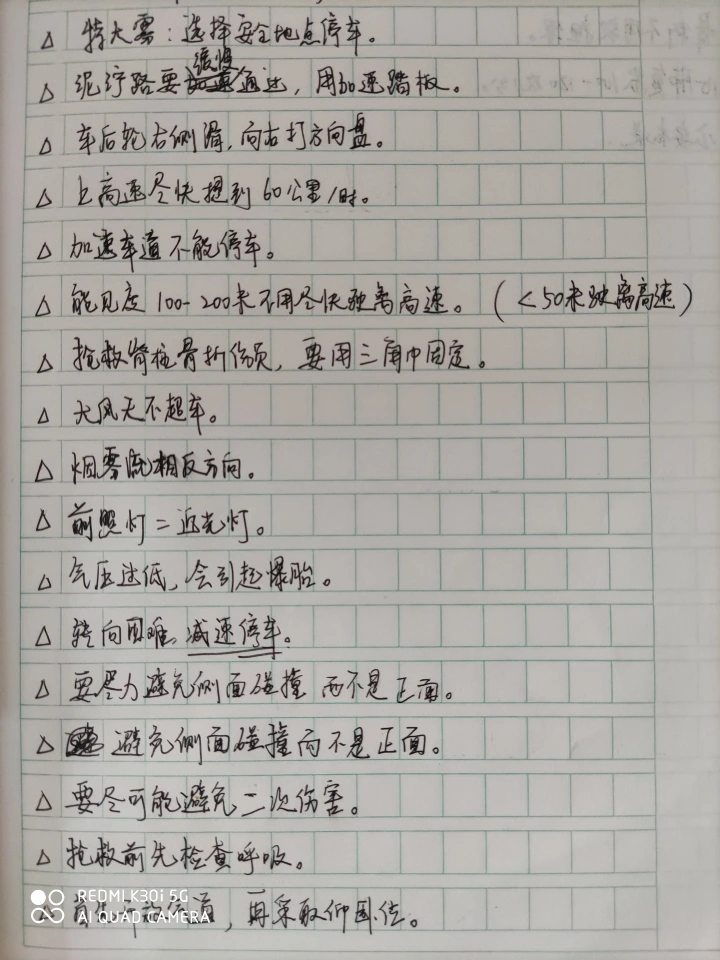 △ 特大雾：选择安全地点停车。
△ 泥泞路要缓慢通过，用加速踏板。
△ 车后轮右侧滑，向右打方向盘。
△ 上高速尽快提到60公里/时。
△ 加速车道不能停车。
△ 能见度100-200米不用尽快驶离高速。（<50米驶离高速）
△ 抢救脊柱骨折伤员，要用三角巾固定。
△ 大风天不超车。
△ 烟雾流相反方向。
△ 前照灯=近光灯。
△ 气压过低，会引起爆胎。
△ 转向困难，减速停车。
△ 要尽力避免侧面碰撞而不是正面。
△ 避免侧面碰撞而不是正面。
△ 要尽可能避免二次伤害。
△ 抢救前先检查呼吸。
道，再采取仰卧位。
REDMI K30i 5G
AI QUAD CAMERA